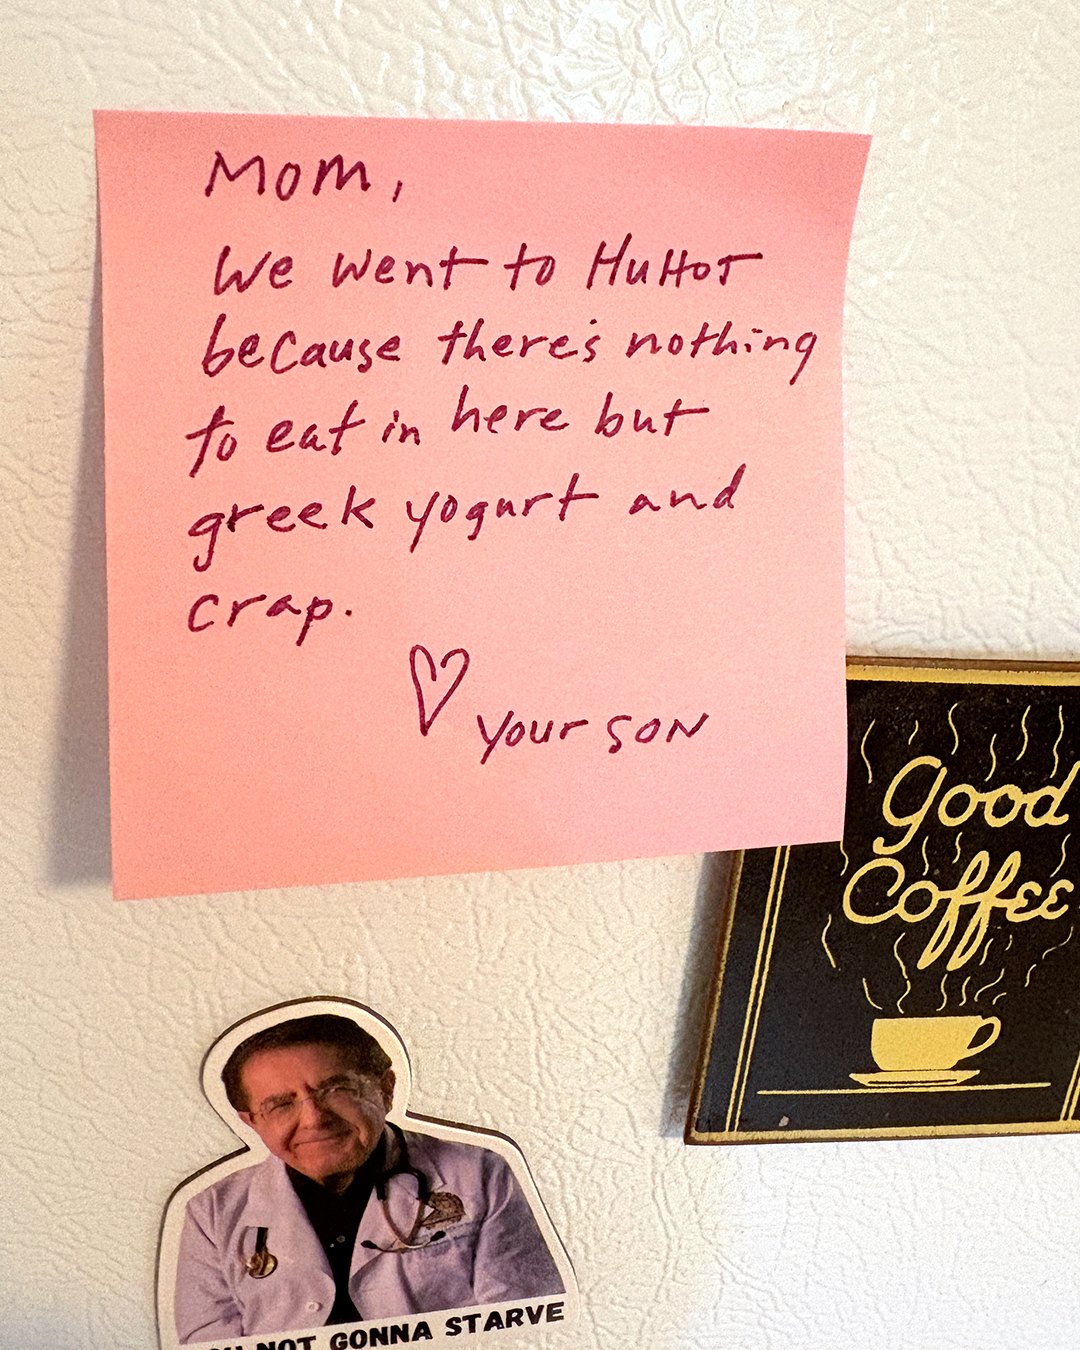 Mom,
We went to HuHoT
because there's nothing
to eat in here but
greek yogurt and
crap.
♡ your SON
Good
Coffee
NOT GONNA STARVE